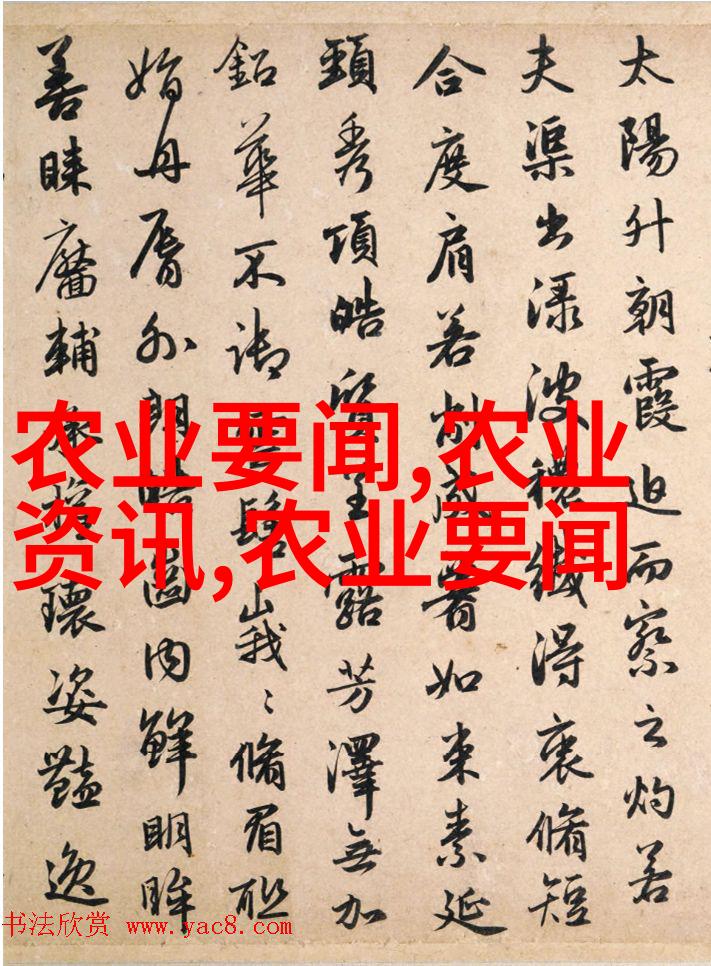 太陽升朝霞迫而察之灼若
夫渠出渌波穠纖得衷脩短
合度肩若削成如束素延
頸秀項皓質呈露芳澤無加
鉛華不御雲髻峩〻脩眉聯
娟丹脣外朗皓齒内鮮明眸
善睞靨輔承權瓌姿豔逸
农业要闻,农业
资讯,农业要闻
书法欣赏 www.yac8.com